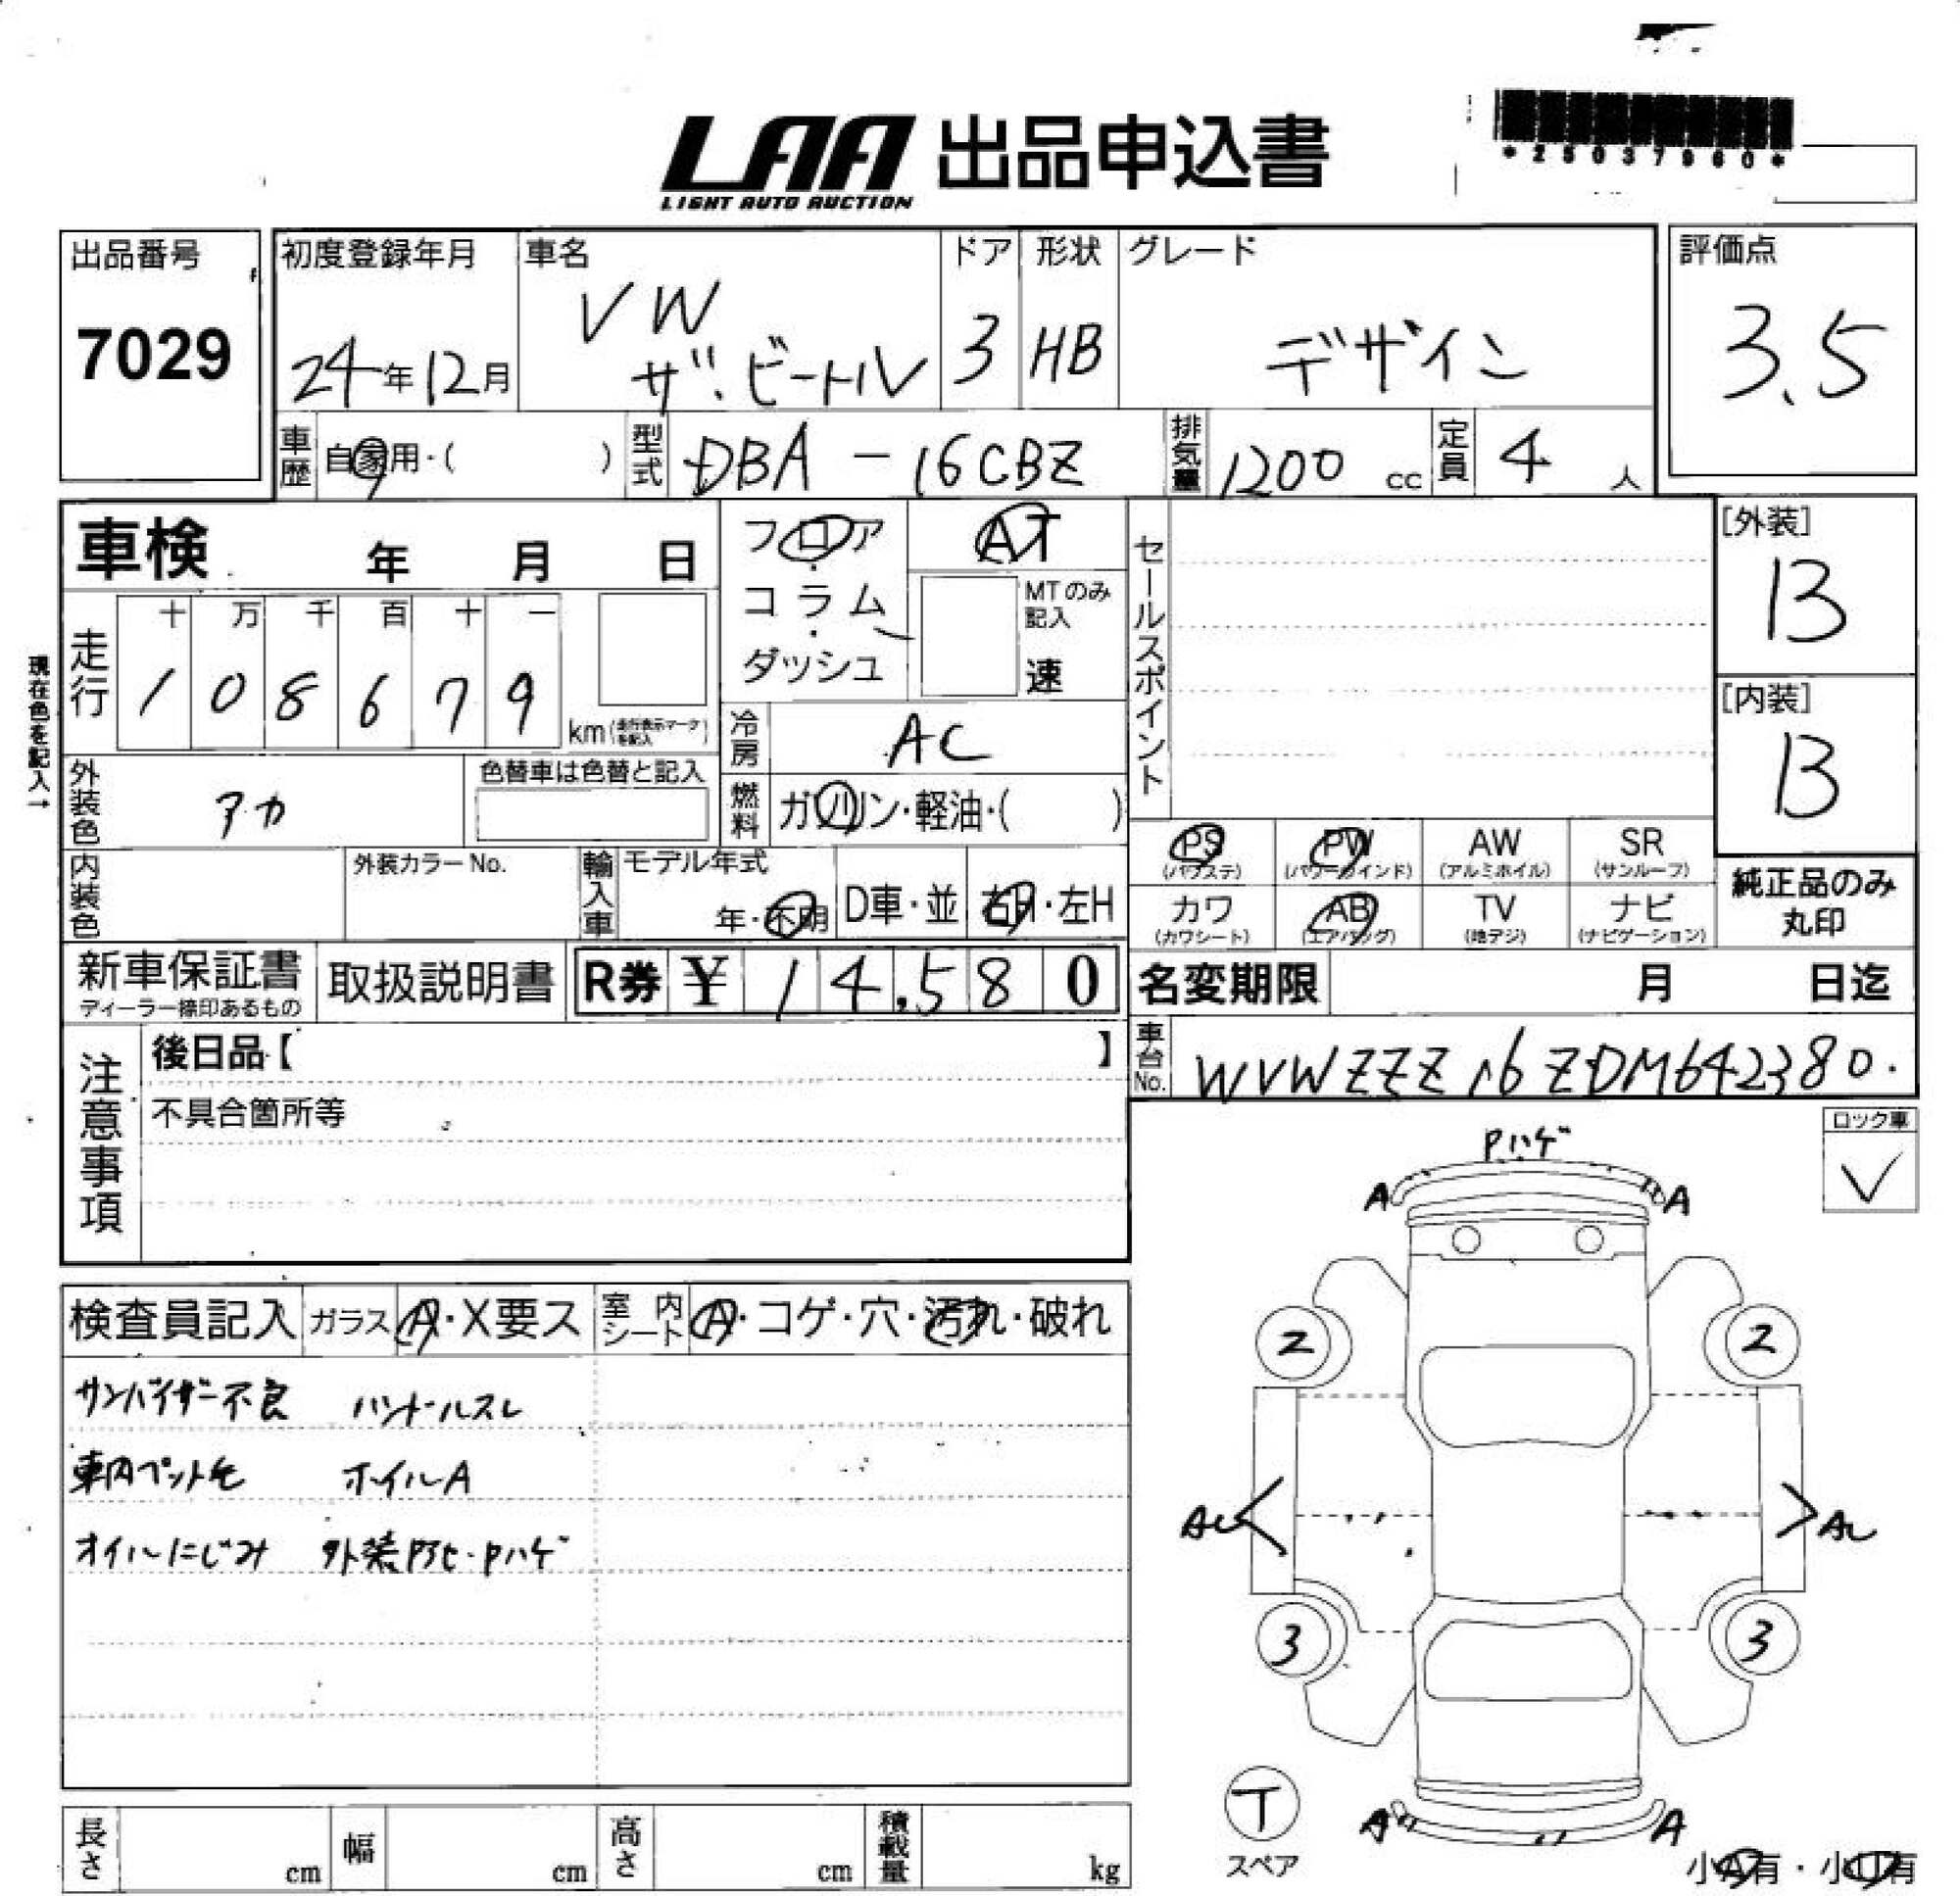 LAA 出品申込書
LIGHT AUTO AUCTION
*25037960*
出品番号
7029
初度登録年月
24年12月
車名
VW
ザ・ビートル
ドア
3
形状
HB
グレード
デザイン
評価点
3.5
車歴 自家用・( )
型式 DBA-16CBZ
排気量 1200 cc
定員 4 人
車検 年 月 日
フロア・コラム・ダッシュ
AT
MTのみ記入
速
セールスポイント
[外装]
B
[内装]
B
現在色を記入→
走行
十 万 千 百 十 一
1 0 8 6 7 9
km(走行表示マークを記入)
冷房 AC
外装色 アカ
色替車は色替と記入
燃料 ガソリン・軽油・( )
PS (パワステ)
PW (パワーウインド)
AW (アルミホイル)
SR (サンルーフ)
カワ (カワシート)
AB (エアバッグ)
TV (地デジ)
ナビ (ナビゲーション)
純正品のみ
丸印
内装色
外装カラーNo.
輸入車 モデル年式
年・不明
D車・並
右H・左H
新車保証書
ディーラー捺印あるもの
取扱説明書
R券 ¥ 14,580
名変期限 月 日迄
車台No. WVWZZZ16ZDM642380.
注意事項
後日品【 】
不具合箇所等
ロック車
✓
検査員記入 ガラス A・X要ス
室内シート A・コゲ・穴・汚れ・破れ
サンバイザー不良 ハンドルスレ
車内ペット毛 ホイルA
オイルにじみ 外装Pハゲ
Pハゲ
A A
2 2
AU AU
3 3
T
スペア
A A
小A有・小U有
長さ cm
幅 cm
高さ cm
積載量 kg